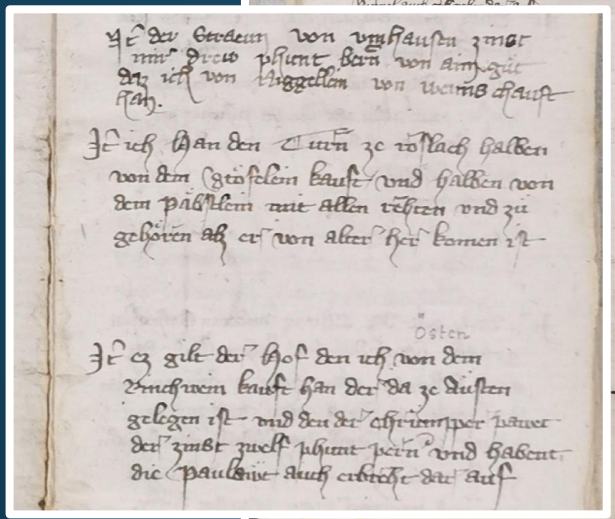 Jt der Straeun von vmhausen zinst
mir drew phunt bern von aim gut
daz ich von Niggellein von weins chauft
han.
Jt ich han den Turn ze roslach halben
von dem Groselein kauft vnd halben von
dem Päbstlein mit allen rehten vnd zů
gehören alz er von alter her komen ist
Östen
Jt ez gilt der Hof den ich von dem
kauft han der da ze Austen
gelegen ist vnd den der pawet
der zinst zwelf phunt pern vnd habent
die Paulewt auch erbreht dar auf